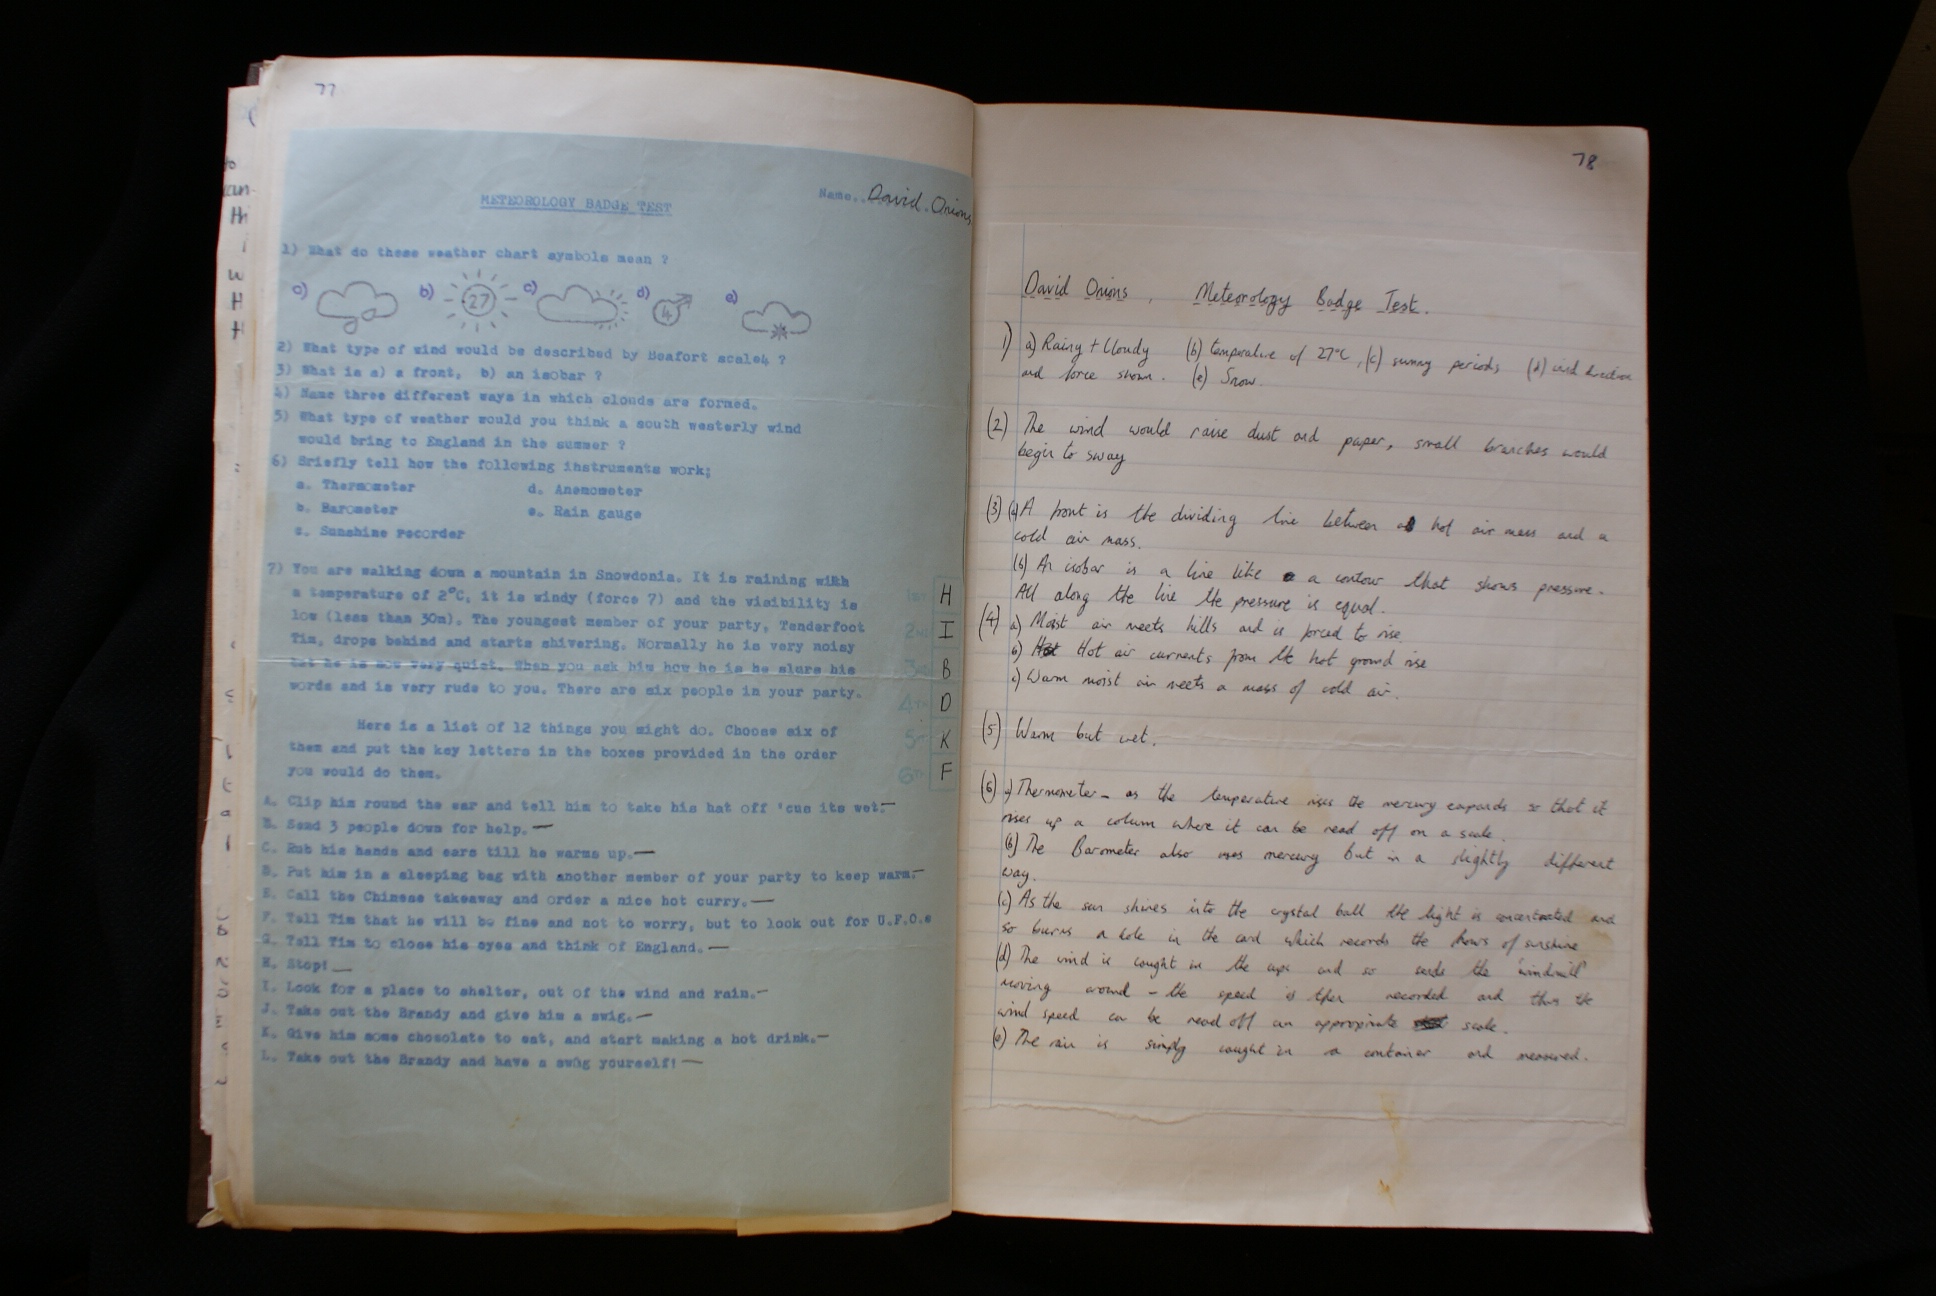 77
METEOROLOGY BADGE TEST
Name..David.Onions
1) What do these weather chart symbols mean ?
b) 27 c) d) 4
2) What type of wind would be described by Beafort scale4 ?
3) What is a) a front, b) an isobar ?
4) Name three different ways in which clouds are formed.
5) What type of weather would you think a south westerly wind
would bring to England in the summer ?
6) Briefly tell how the following instruments work;
a. Thermometer d. Anemometer
b. Barometer e. Rain gauge
c. Sunshine recorder
7) You are walking down a mountain in Snowdonia. It is raining with
a temperature of 2°C, it is windy (force 7) and the visibility is
low (less than 30m). The youngest member of your party, Tenderfoot
Tim, drops behind and starts shivering. Normally he is very noisy
but he is now very quiet. When you ask him how he is he slurs his
words and is very rude to you. There are six people in your party.
Here is a list of 12 things you might do. Choose six of
them and put the key letters in the boxes provided in the order
you would do them.
1st H
2nd I
3rd B
4th D
5th K
6th F
A. Clip him round the ear and tell him to take his hat off 'cus its wet.—
B. Send 3 people down for help.—
C. Rub his hands and ears till he warms up.—
D. Put him in a sleeping bag with another member of your party to keep warm.—
E. Call the Chinese takeaway and order a nice hot curry.—
F. Tell Tim that he will be fine and not to worry, but to look out for U.F.O.s
G. Tell Tim to close his eyes and think of England.—
H. Stop!—
I. Look for a place to shelter, out of the wind and rain.—
J. Take out the Brandy and give him a swig.—
K. Give him some chocolate to eat, and start making a hot drink.—
L. Take out the Brandy and have a swig yourself!—
78
David Onions, Meteorology Badge Test.
1) a) Rainy + Cloudy (b) temperature of 27°C, (c) sunny periods (d) wind direction
and force shown. (e) Snow.
(2) The wind would raise dust and paper, small branches would
begin to sway
(3) (a) A front is the dividing line between a hot air mass and a
cold air mass.
(b) An isobar is a line like a contour that shows pressure.
All along the line the pressure is equal.
(4) a) Moist air meets hills and is forced to rise
b) Hot air currents from the hot ground rise
c) Warm moist air meets a mass of cold air.
(5) Warm but wet.
(6) a) Thermometer - as the temperature rises the mercury expands so that it
rises up a column where it can be read off on a scale.
(b) The Barometer also uses mercury but in a slightly different
way.
(c) As the sun shines into the crystal ball the light is concentrated and
so burns a hole in the card which records the hours of sunshine
(d) The wind is caught in the cups and so sends the 'windmill'
moving around - the speed is then recorded and thus the
wind speed can be read off an approximate scale.
(e) The rain is simply caught in a container and measured.